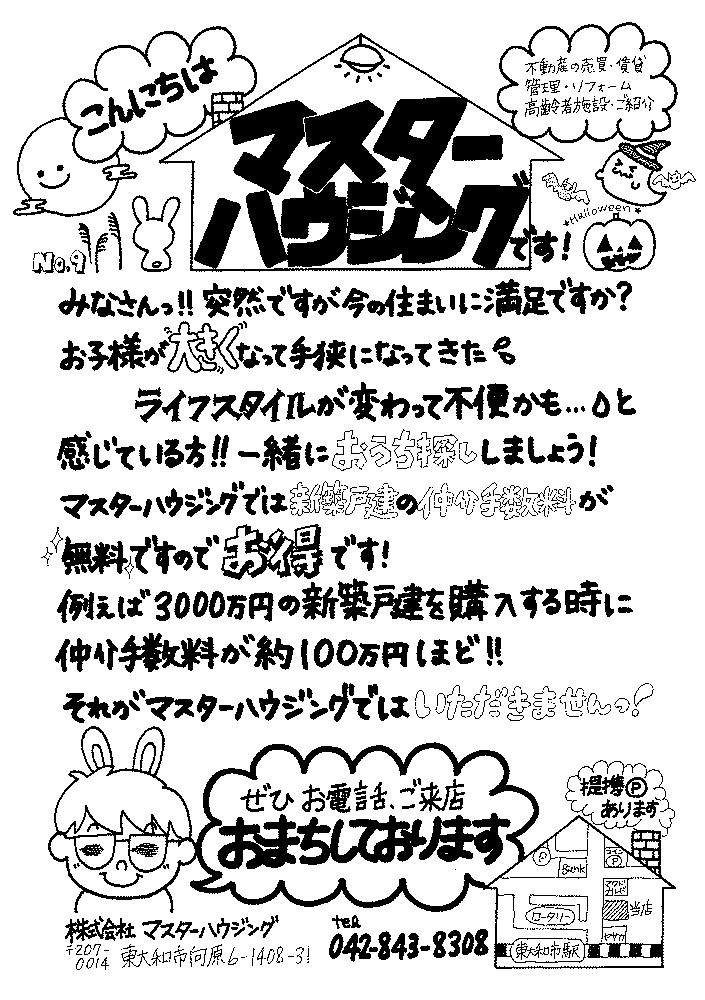 こんにちは
不動産の売買・賃貸
管理・リフォーム
高齢者施設・ご紹介
マスター
ハウジングです!
Halloween
No.9
みなさんっ!! 突然ですが今の住まいに満足ですか?
お子様が大きくなって手狭になってきた
ライフスタイルが変わって不便かも…と
感じている方!! 一緒におうち探ししましょう!
マスターハウジングでは新築戸建の仲介手数料が
無料ですのでお得です!
例えば3000万円の新築戸建を購入する時に
仲介手数料が約100万円ほど!!
それがマスターハウジングではいただきませんっ!
ぜひ お電話、ご来店
おまちしております
提携Ⓟ
あります
Ⓟ
Bank
Ⓟ
当店
ロータリー
東大和市駅
株式会社 マスターハウジング
〒207-0014 東大和市向原6-1408-31
tel
042-843-8308